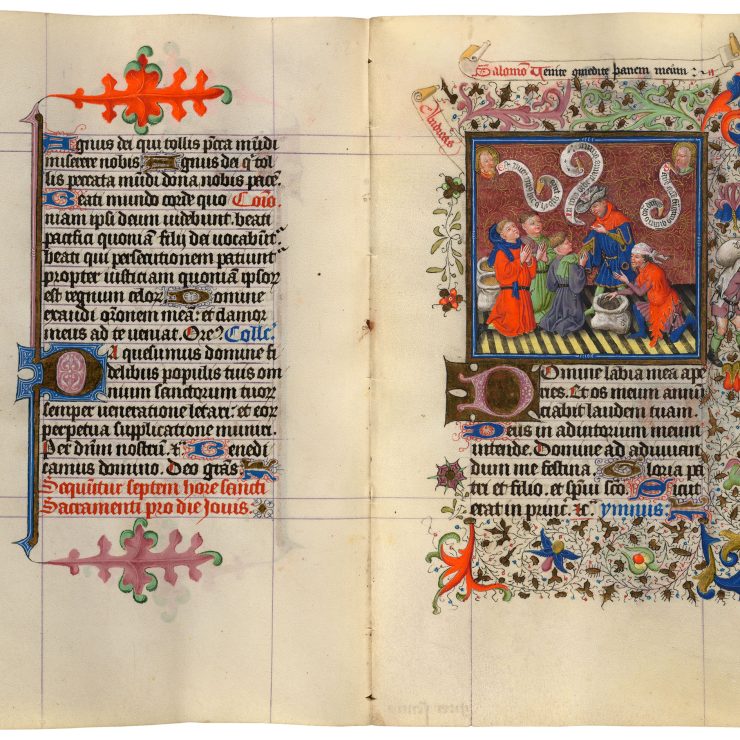 Agnus dei qui tollis pcca mūdi
miserere nobis. Agnus dei q̄ tol
lis peccata mūdi dona nobis pacē.
Beati mundo corde quo Cōio.
niam ipsi deum uidebunt. beati
pacifici quoniam filij dei uocabūt.
beati qui persecutionem patiunt
propter iusticiam quoniam ipsor
est regnum celor. Domine
exaudi orōnem meā: et clamor
meus ad te ueniat. Ore9. Colle.
Da quesumus domine fi
delibus populis tuis om
nium sanctorum tuor
semper ueneratione letari: et eor
perpetua supplicatione muniri.
Per dnm nostrū. Benedi
camus domino. Deo grās.
Sequūtur septem hore sancti
Sacramenti pro die Jouis.
Salomō Venite comedite panem meum:
Iudicas
Domine labia mea ape
ries. Et os meum annū
ciabit laudem tuam.
Deus in adiutorium meum
intende. Domine ad adiuuan
dum me festina. Gloria pa
tri et filio. et spūi sco. Sicut
erat in princ. ymnus: